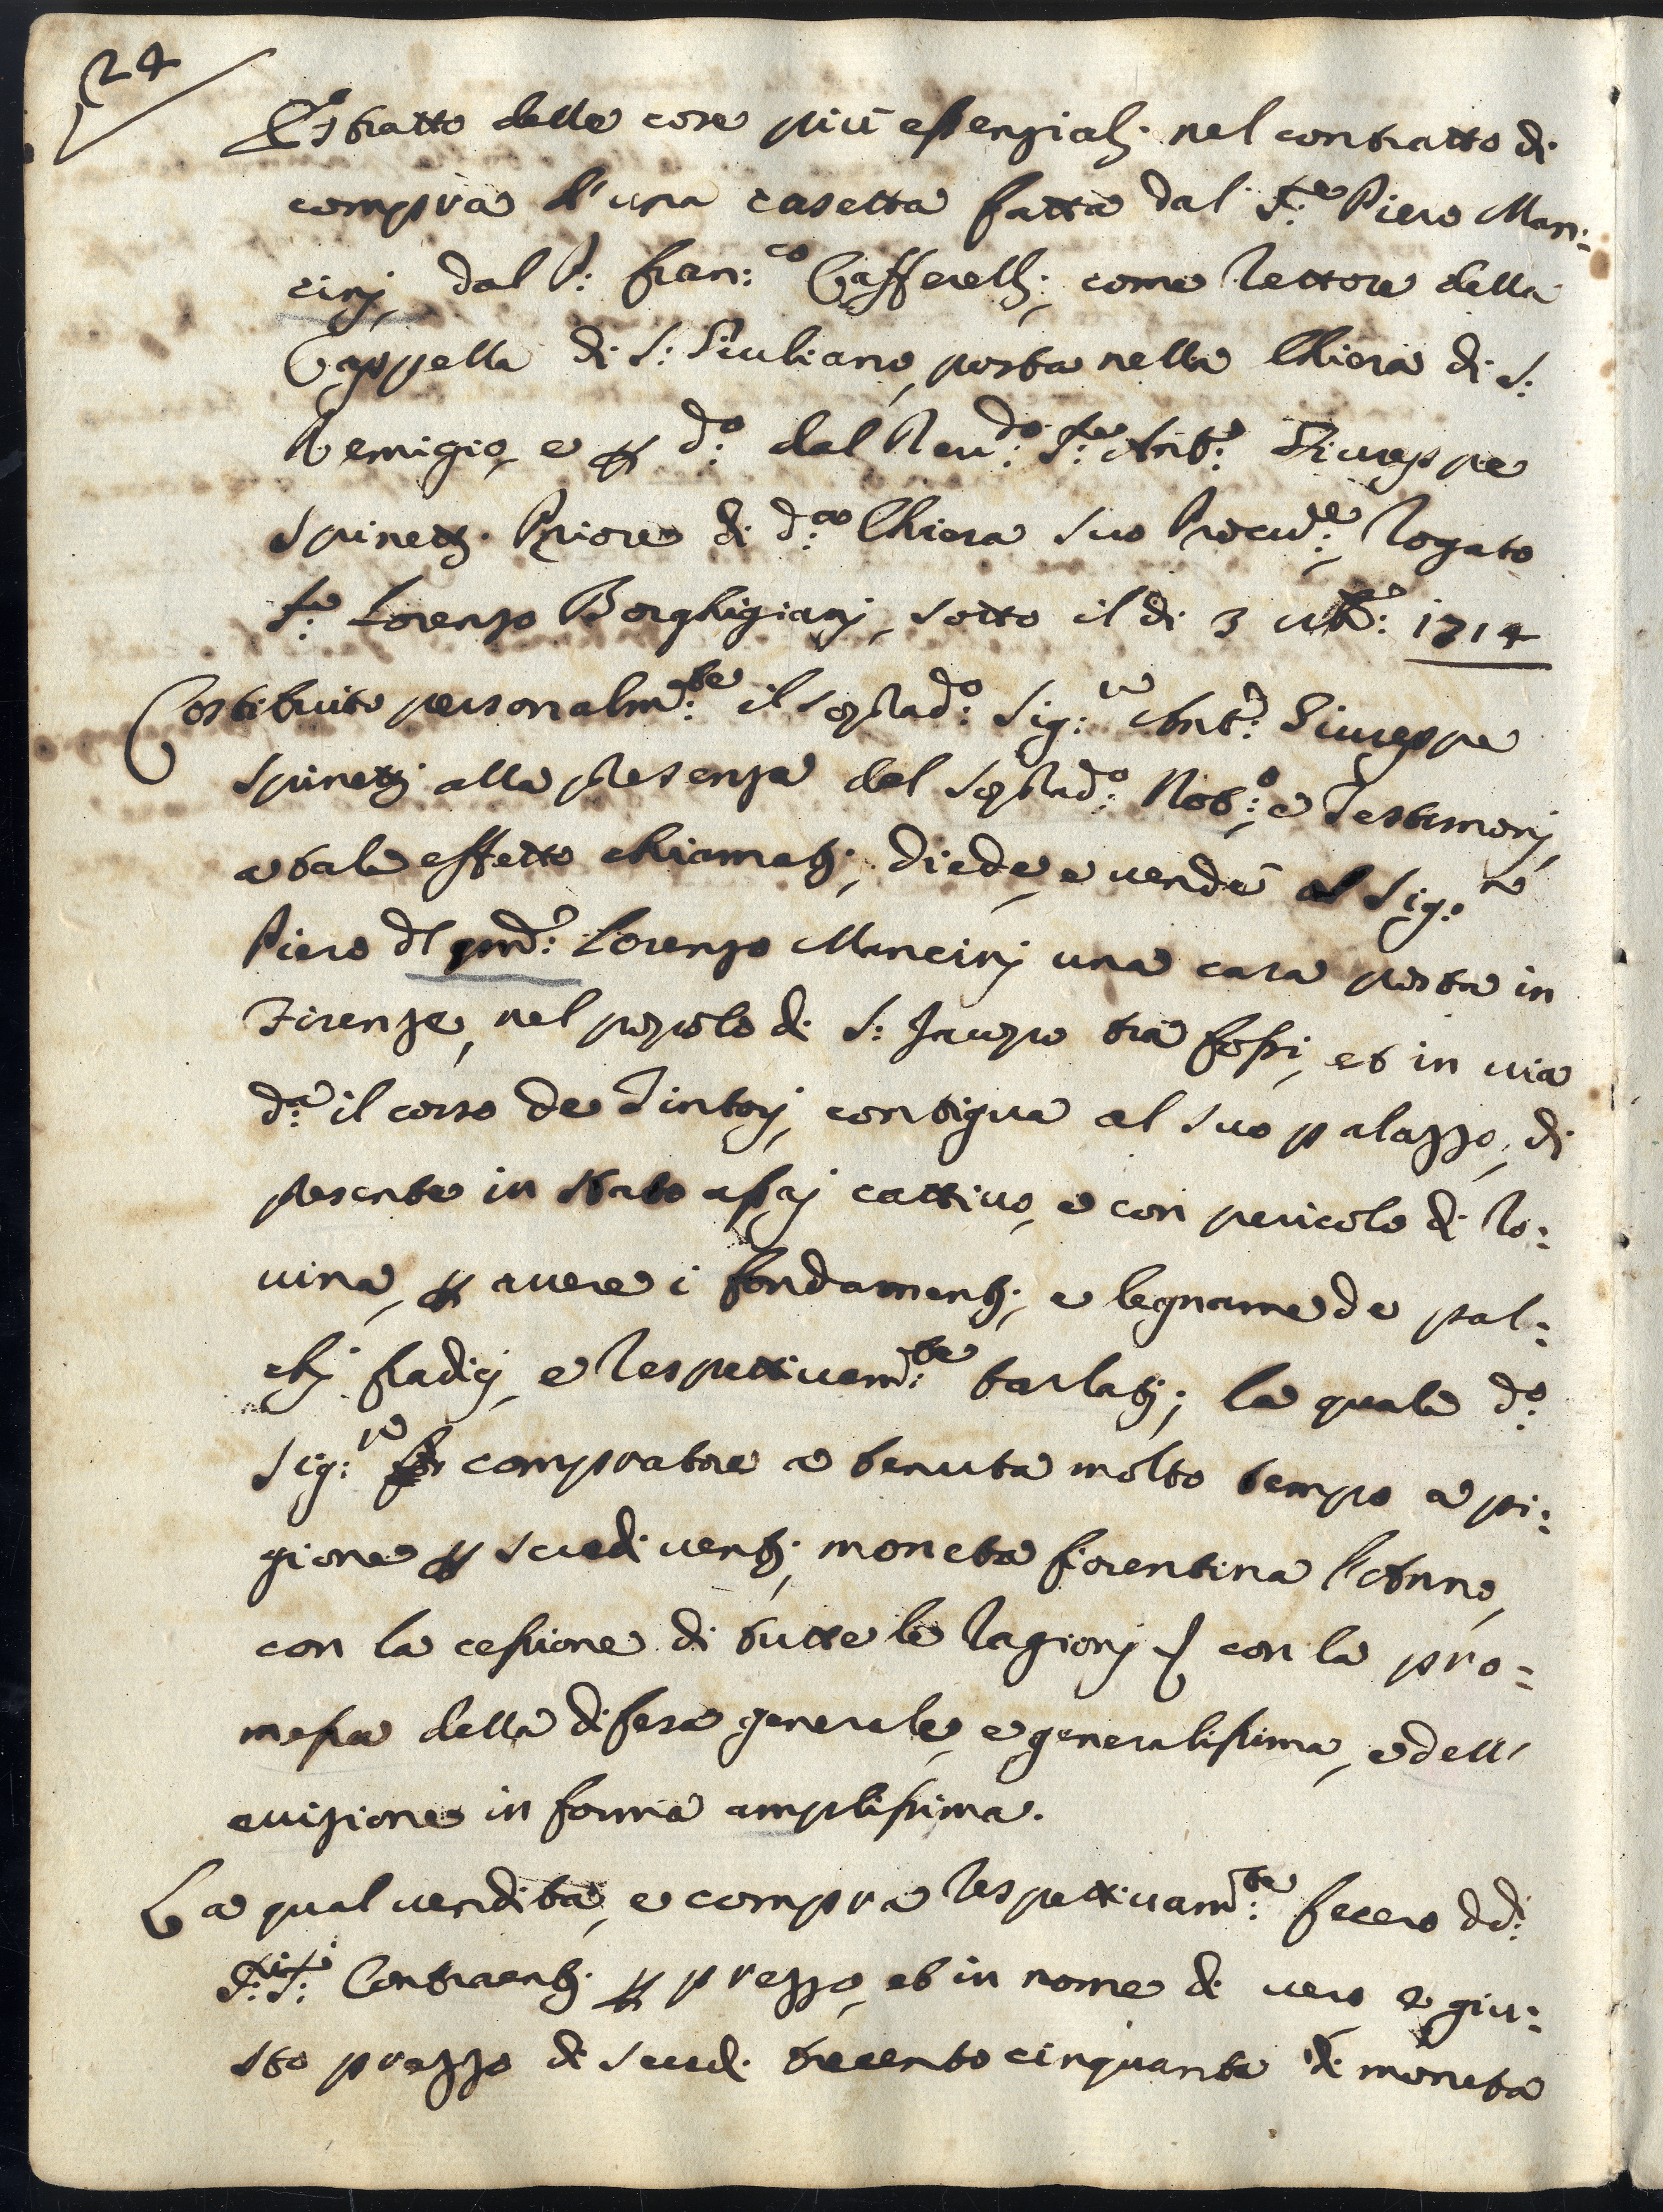 24
Estratto delle cose più essenziali nel contratto di
compra d'una casetta fatta dal S:re Piero Man:
cinj, dal P: Fran:co Cafferelli, come Rettore della
Cappella di S: Giuliano, posta nella Chiesa di S:
Remigio, e p d:o dal Reu:do S:re Ant:o Giuseppe
Spinetti Priore di d:a Chiesa suo Procu:re, rogato
S:re Lorenzo Borghigianj, sotto il di 3 1714
Costituito personalm:te il soprad:o Sig:re Ant:o Giuseppe
Spinetti alla presenza del soprad:o Not:o, e Testimonj,
a tale effetto chiamati, diede, e uendè al Sig:re
Piero dl qnd: Lorenzo Mancinj una casa posta in
Firenze, nel popolo di S: Jacopo trà fossi, et in uia
d:a il corso de Tintorj, contigua al suo palazzo, di
presente in stato assaj cattiuo, e con pericolo di ro:
uina, p auere i fondamenti, e legname de pal:
chj fradicj, e respettiuam:te tarlati; la quale d:o
Sig:re compratore a tenuta molto tempo a pi:
gione p scudi uenti, moneta fiorentina l'Anno,
con la cessione di tutte le ragionj con la pro:
messa della difesa generale, e generalissima, e dell'
euizione in forma amplissima.
La qual uendita, e compra respettiuam:te fecero dd:i
S:ri S:ri Contraenti p prezzo, et in nome di uero e giu:
sto prezzo di scudi trecento cinquanta di moneta